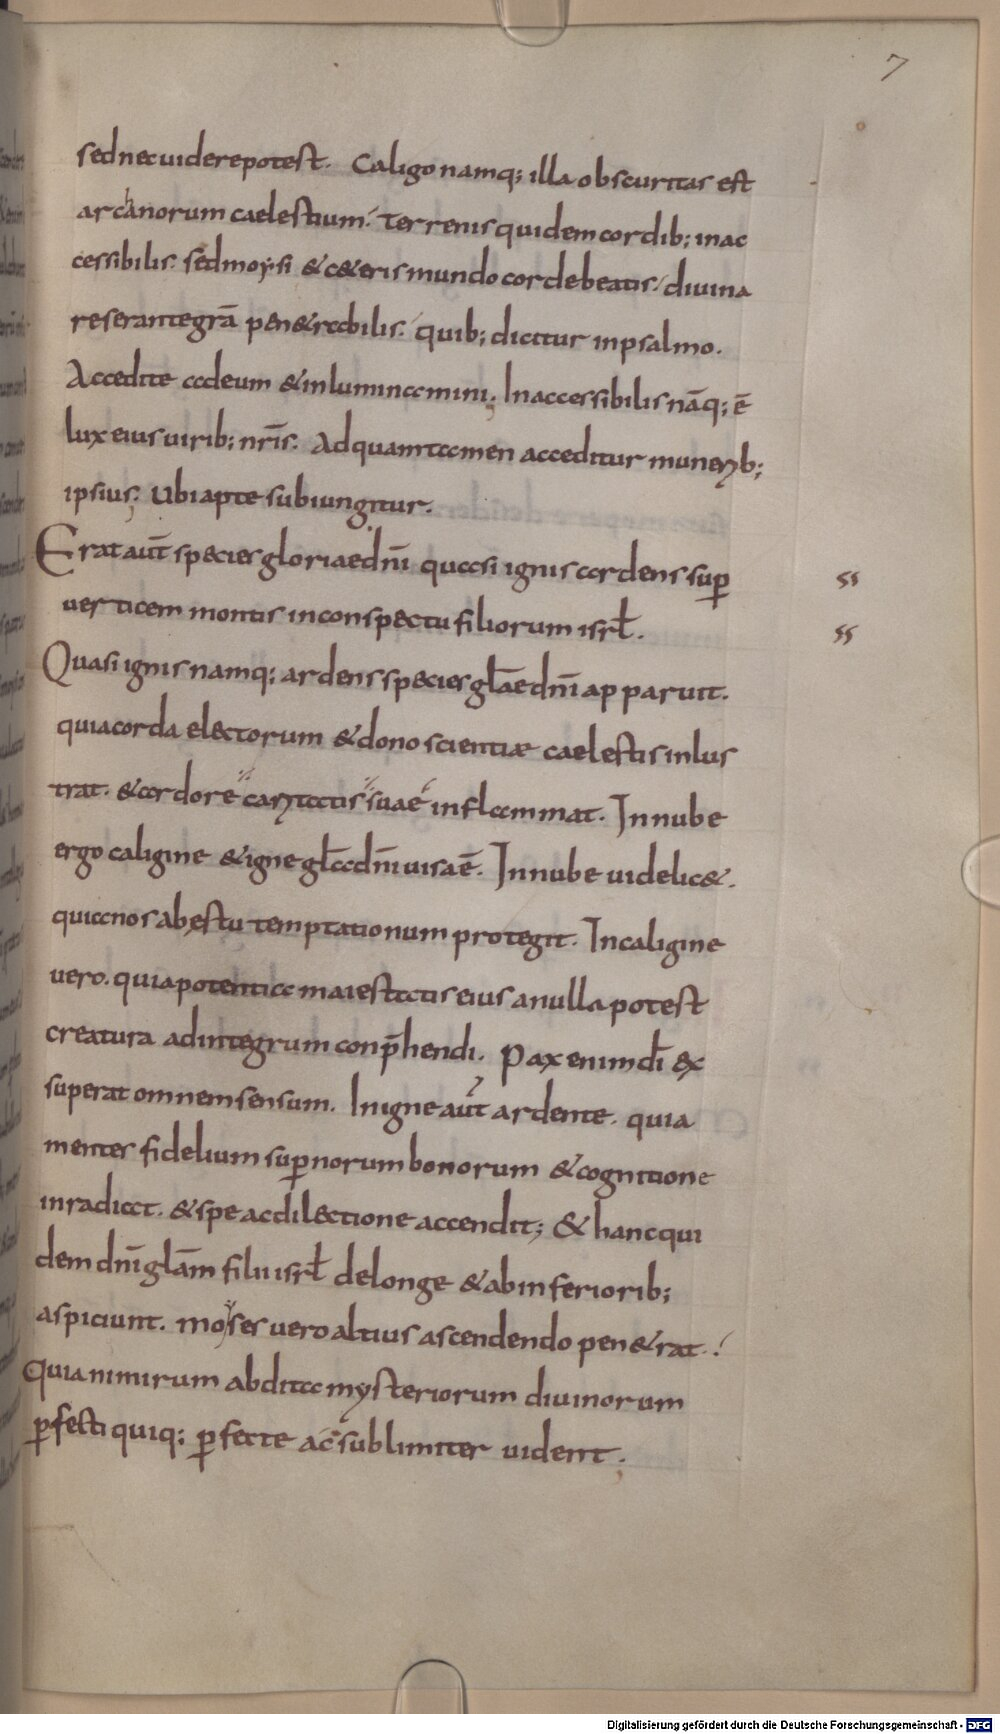 7
sed nec uidere potest. Caligo namq; illa obscuritas est
archanorum caelestium. terrenis quidem cordib; inac
cessibilis. sed moysi & c&eris mundo corde beatis / diuina
reserante grã pen&rabilis. quib; dicitur in psalmo.
Accedite ad eum & inluminamini. Inaccessibilis nãq; ẽ
lux eius uirib; nr̃is. Ad quam tamen acceditur munerib;
ipsius. Ubi apte subiungitur.
Erat aut̃ species gloriae dnĩ quasi ignis ardens sup̱
uerticem montis in conspectu filiorum isrł.
Quasi ignis namq; ardens species głae dnĩ apparuit.
quia corda electorum & dono scientiæ caelestis inlus
trat. & ardore caritatis suae inflammat. In nube
ergo caligine & igne gła dnĩ uisa ẽ. In nube uidelic&.
quia nos ab ęstu temptationum protegit. In caligine
uero. quia potentia maiestatis eius a nulla potest
creatura ad integrum conp̃hendi. Pax enim dĩ ex
superat omnem sensum. In igne aut̃ ardente. quia
mentes fidelium sup̱norum bonorum & cognitione
inradiat. & spe ac dilectione accendit; & hanc qui
dem dnĩ głãm filii isrł de longe & ab inferiorib;
aspiciunt. moyses uero altius ascendendo pen&rat.
Quia nimirum abdita mysteriorum diuinorum
p̱fecti quiq; p̱fecte ac sublimiter uident.
ss
ss
Digitalisierung gefördert durch die Deutsche Forschungsgemeinschaft - DFG